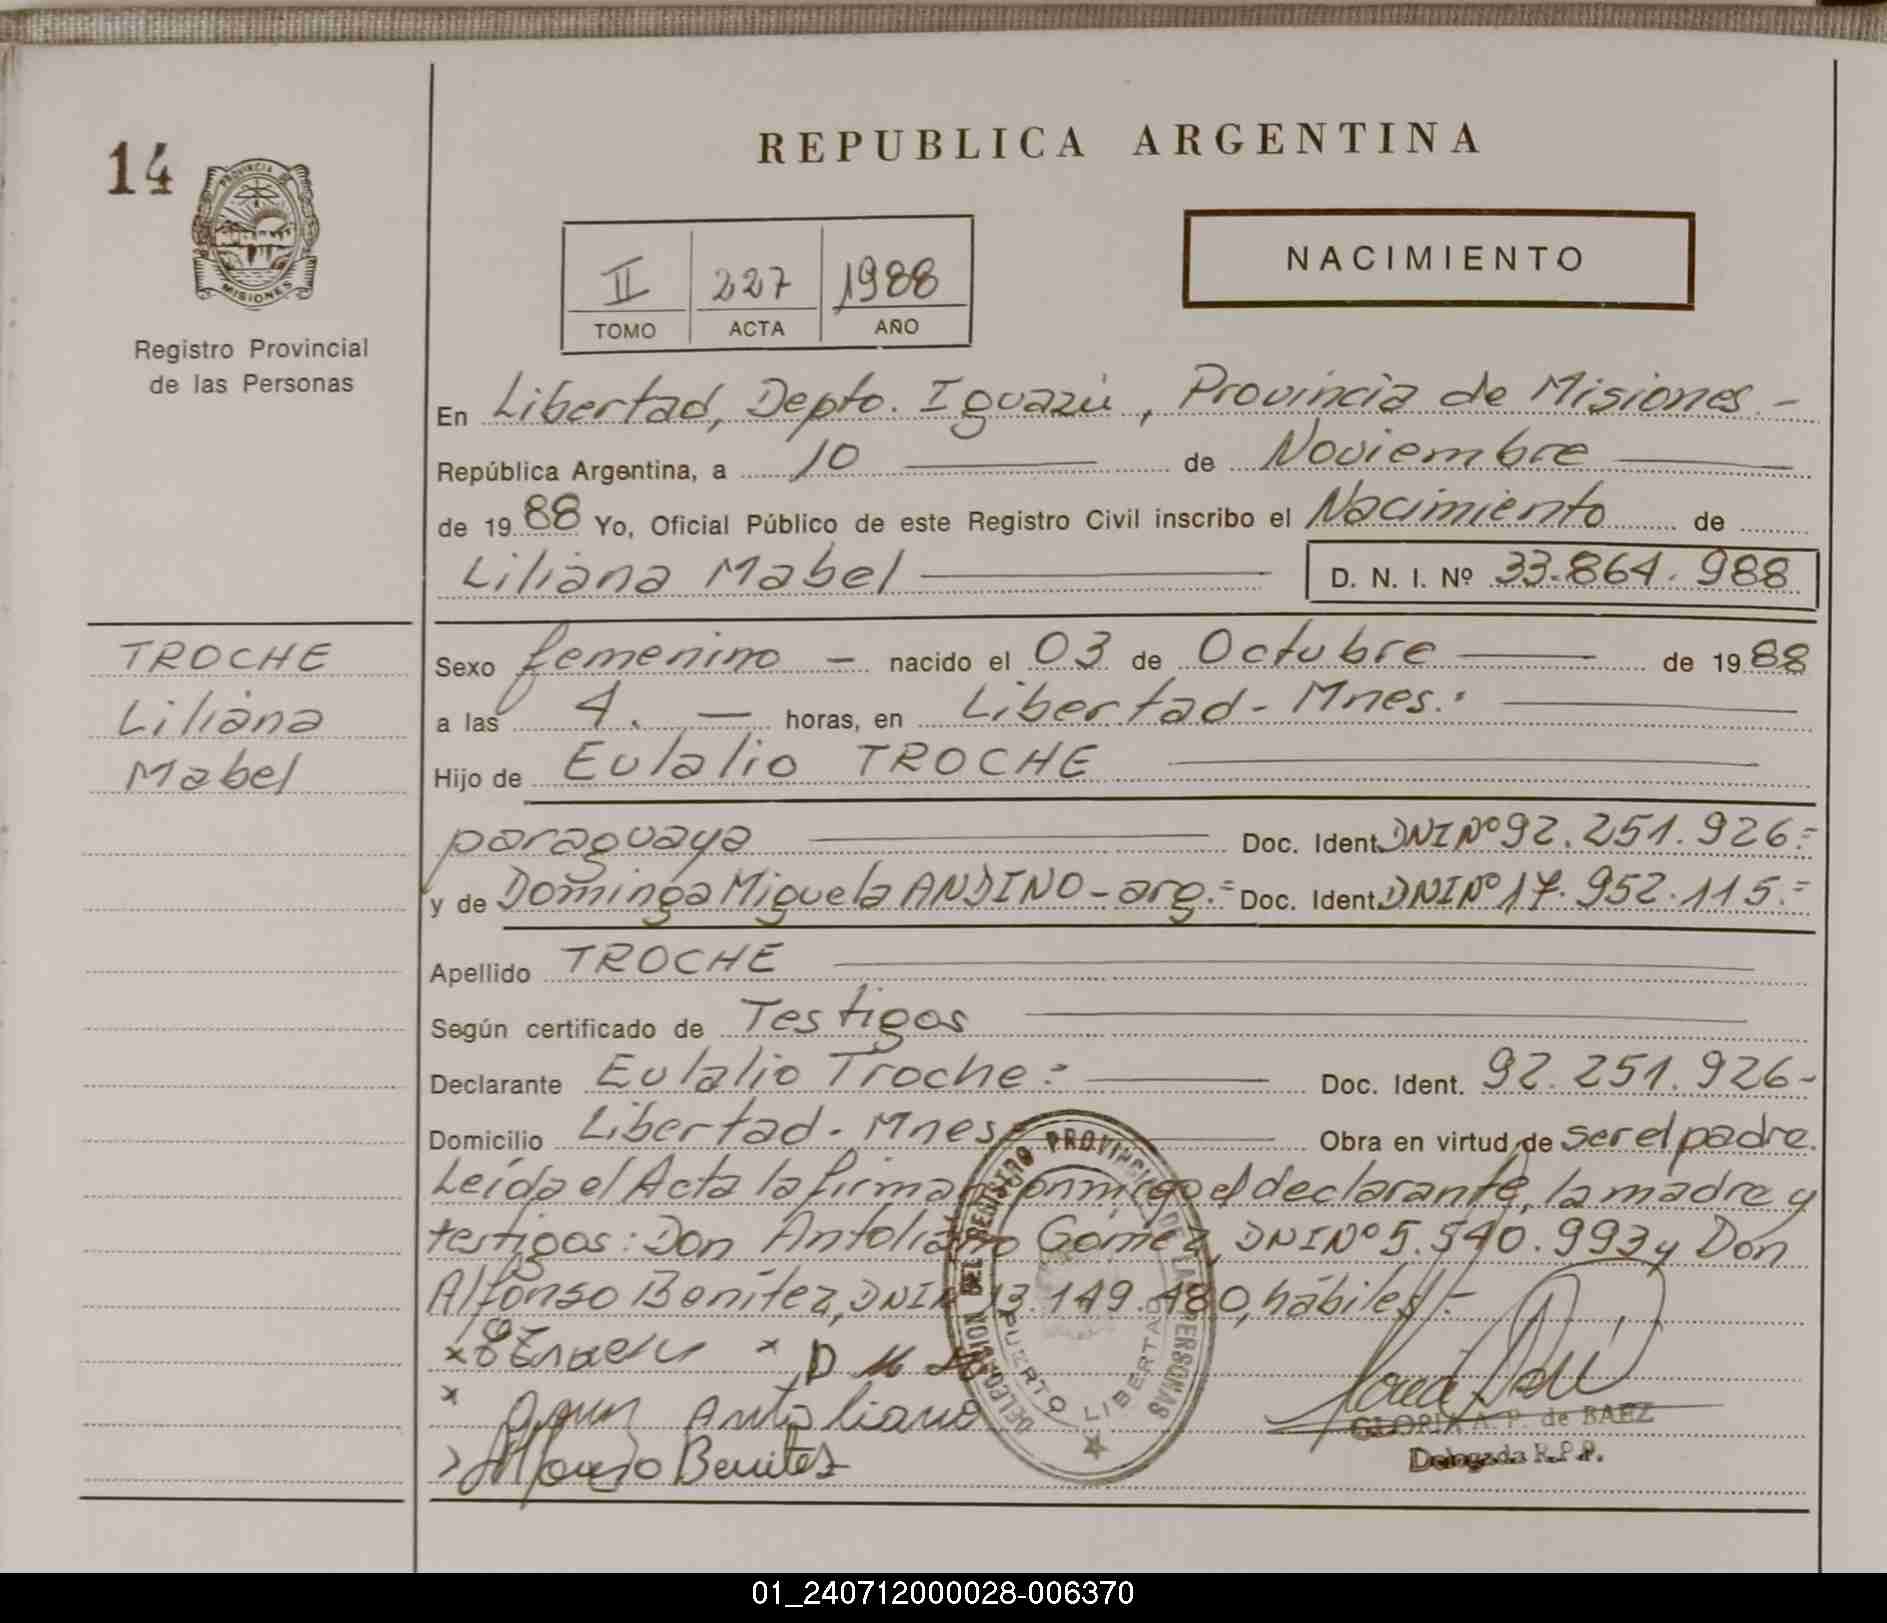 14
PROVINCIA DE
MISIONES
Registro Provincial
de las Personas
REPUBLICA ARGENTINA
II 227 1988
TOMO ACTA AÑO
NACIMIENTO
En Libertad, Depto. Iguazú, Provincia de Misiones.-
República Argentina, a 10 de Noviembre
de 1988 Yo, Oficial Público de este Registro Civil inscribo el Nacimiento de
Liliana Mabel D. N. I. Nº 33.864.988
TROCHE
Liliana
Mabel
Sexo femenino - nacido el 03 de Octubre de 1988
a las 4. — horas, en Libertad - Mnes.
Hijo de Eulalio TROCHE
paraguaya Doc. Ident. DNI Nº 92.251.926.=
y de Dominga Miguela ANDINO - arg.= Doc. Ident. DNI Nº 17.952.115.=
Apellido TROCHE
Según certificado de Testigos
Declarante Eulalio Troche.= Doc. Ident. 92.251.926-
Domicilio Libertad - Mnes Obra en virtud de ser el padre.
Leída el Acta la firman conmigo el declarante, la madre y
testigos: Don Antoliano Gómez, DNI Nº 5.540.993 y Don
Alfonso Benítez, DNI Nº 13.149.480, hábiles.-
x x D
x Antoliano
Alfonso Benites
DELEGACION DEL REGISTRO PROVINCIAL DE LAS PERSONAS
PUERTO LIBERTAD
GLORIA A. P. de BAEZ
Delegada R.P.P.
01_240712000028-006370